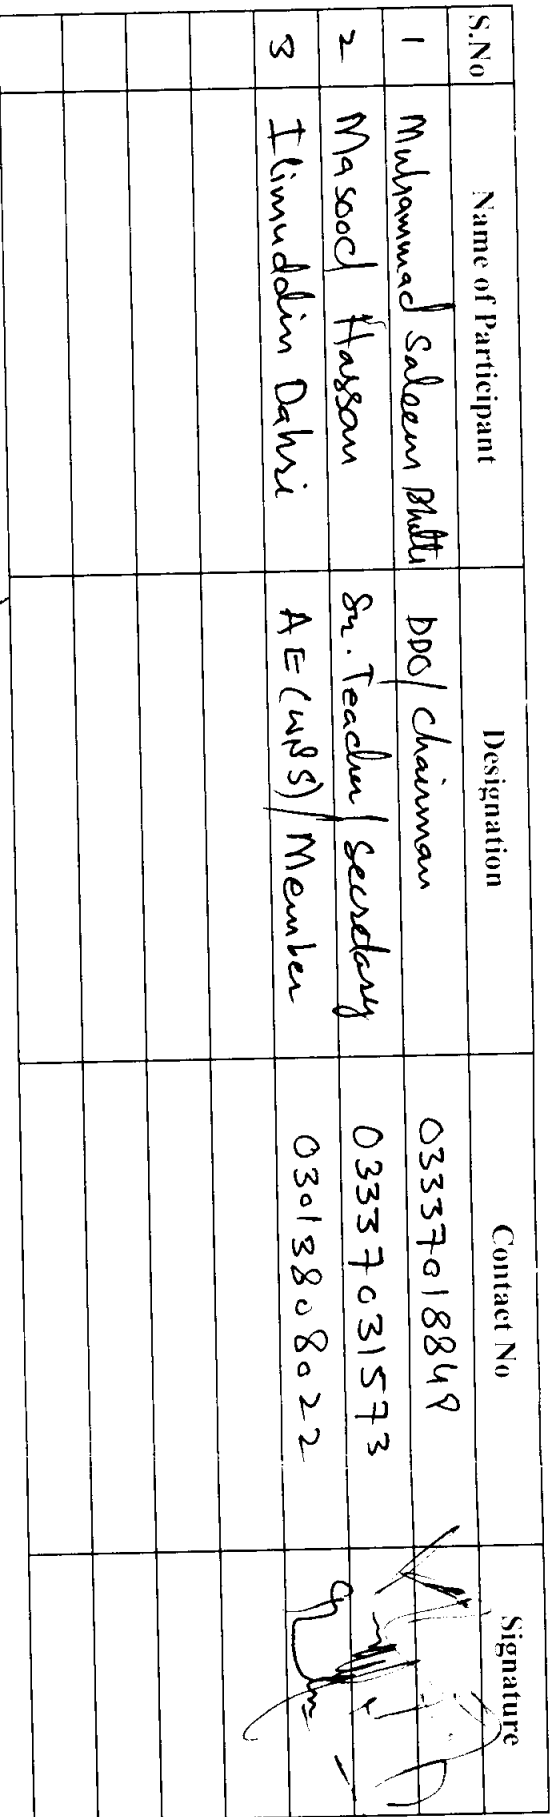 S.No Name of Participant Designation Contact No Signature
1 Muhammad Saleem Bhatti DDO/ Chairman 03337018849
2 Masood Hassan Sr. Teacher/ Secretary 03337031573
3 Ilimuddin Dahri AE (W&S)/ Member 03013808022